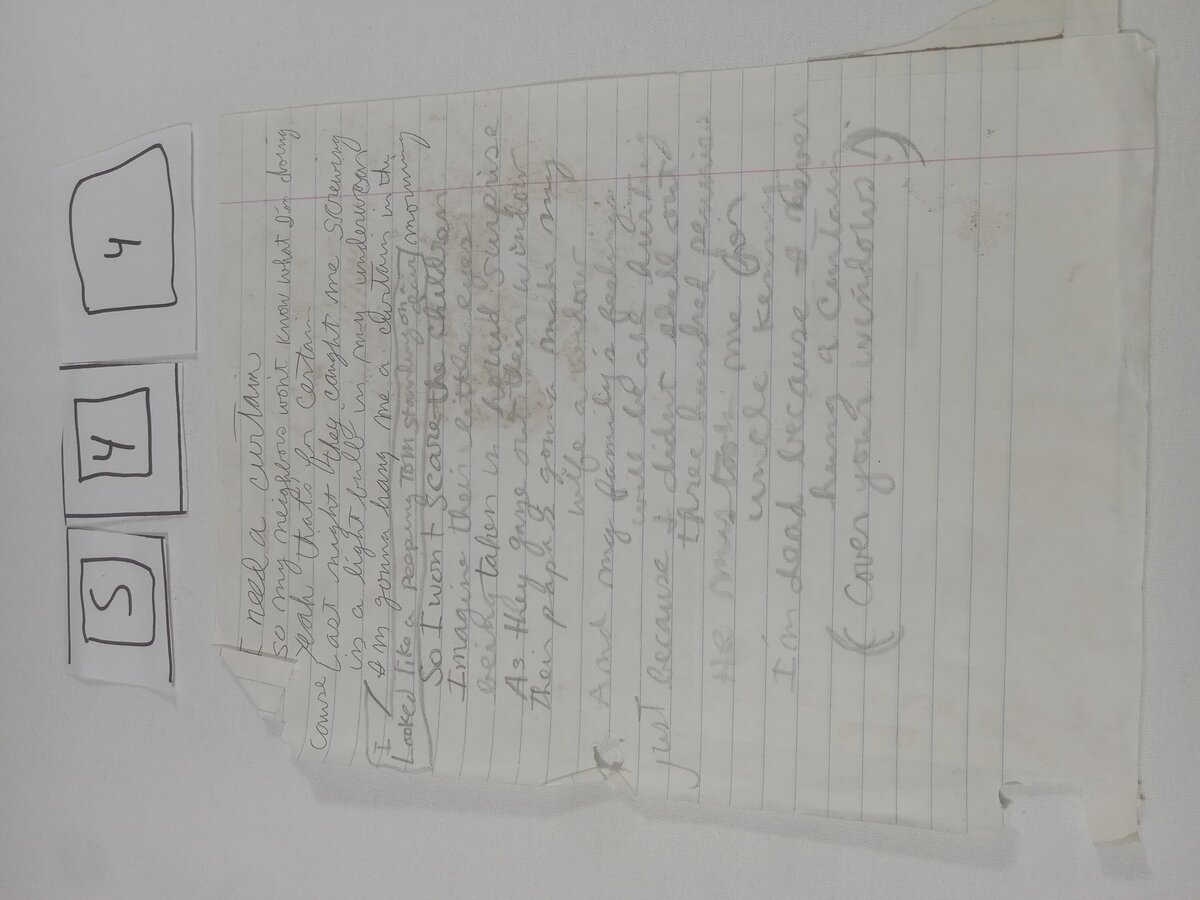 5 4 4
I need a curtain
So my neighbors wont know what I'm doing
Yeah thats for certain
cause Last night they caught me screwing
is a light bulb in my underwear
I'm gonna hang me a curtain in the mourning
(I Looked like a peeping Tom starting
So I wont scare the children
Imagine their little eyes
being taken in by surprise
As they gaze out their window
their papa's gonna make my
wife a widow
And my family's feelings
will be all hurting
just because I didnt shell out
three hundred pennies
He mistook me for
uncle
I'm dead because I never
hung a curtain
(Cover your windows!)